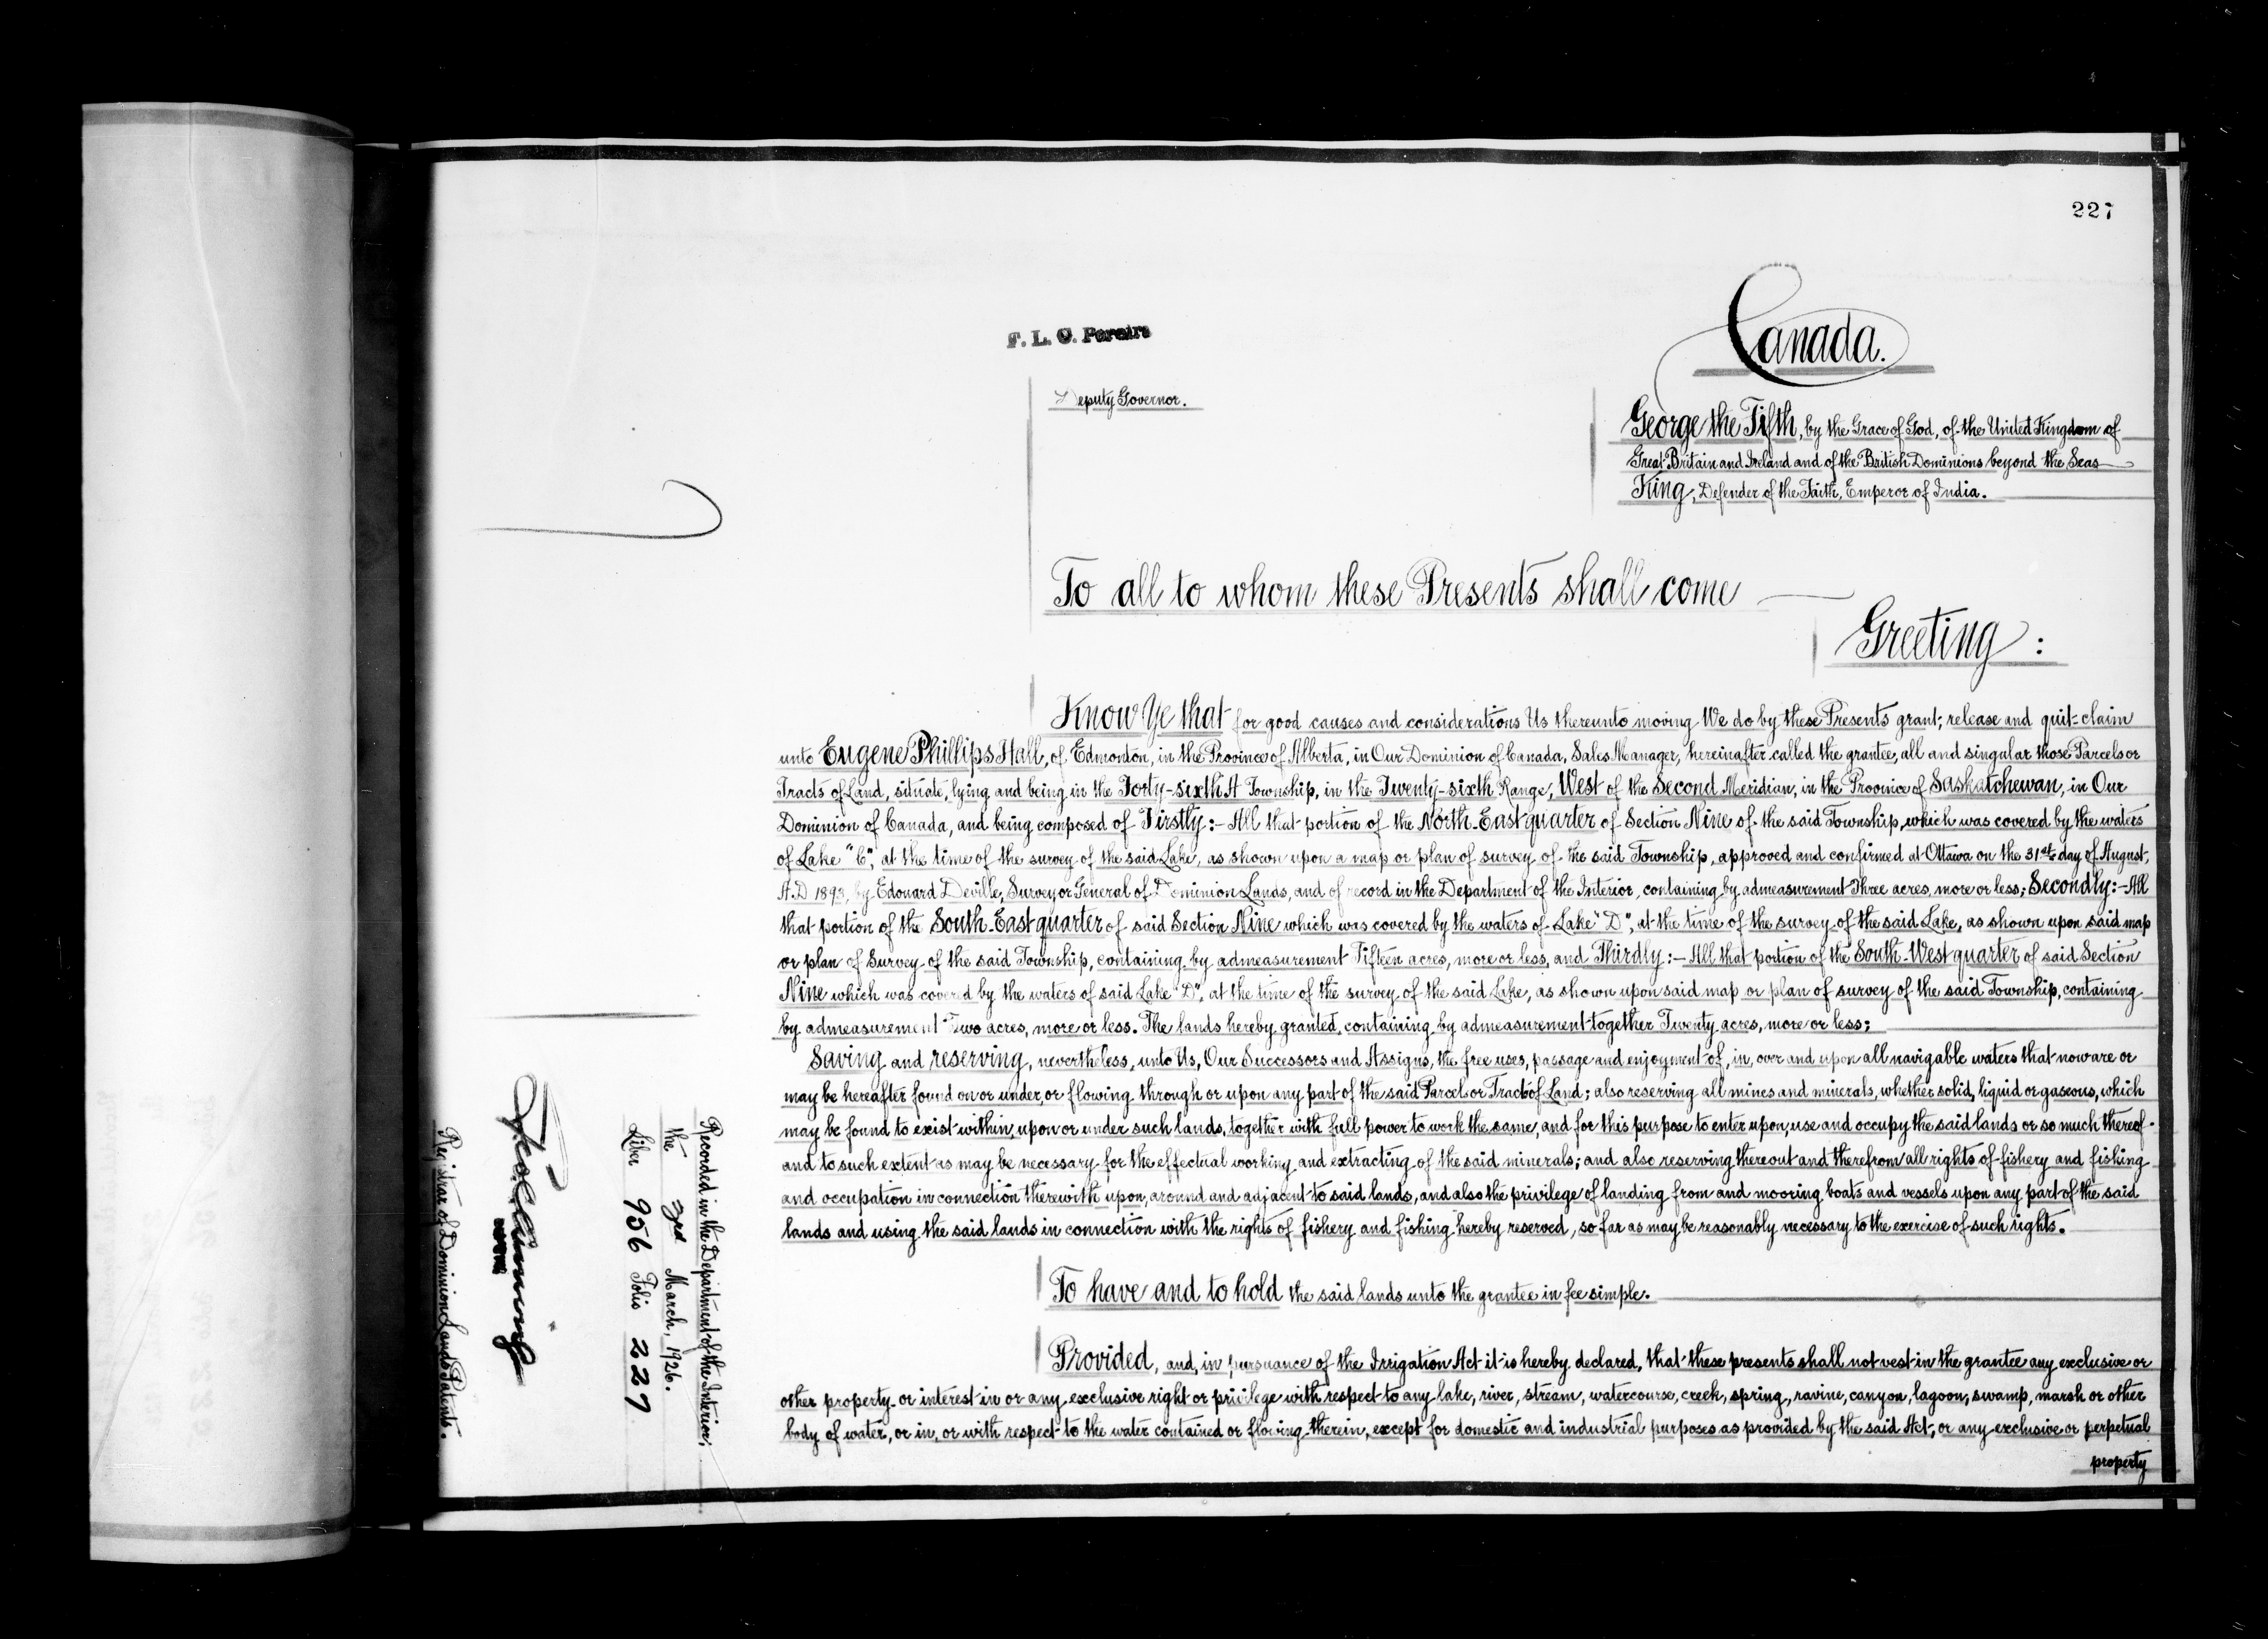 227
F. L. C. Pereira
Canada.
Deputy Governor.
George the Fifth, by the Grace of God, of the United Kingdom of
Great Britain and Ireland and of the British Dominions beyond the Seas
King, Defender of the Faith, Emperor of India.
To all to whom these Presents shall come
Greeting:
Know Ye that for good causes and considerations Us thereunto moving We do by these Presents grant, release and quit-claim
unto Eugene Phillips Hall, of Edmonton, in the Province of Alberta, in Our Dominion of Canada, Sales Manager, hereinafter called the grantee, all and singular those Parcels or
Tracts of Land, situate, lying and being in the Forty-sixth A Township, in the Twenty-sixth Range, West of the Second Meridian, in the Province of Saskatchewan, in Our
Dominion of Canada, and being composed of Firstly:- All that portion of the North-East quarter of Section Nine of the said Township, which was covered by the waters
of Lake "C", at the time of the survey of the said Lake, as shown upon a map or plan of survey of the said Township, approved and confirmed at Ottawa on the 31st day of August,
A.D 1893, by Edouard Deville, Surveyor General of Dominion Lands, and of record in the Department of the Interior, containing by admeasurement Three acres, more or less; Secondly:- All
that portion of the South-East quarter of said Section Nine which was covered by the waters of Lake "D", at the time of the survey of the said Lake, as shown upon said map
or plan of Survey of the said Township, containing by admeasurement Fifteen acres, more or less, and Thirdly:- All that portion of the South-West quarter of said Section
Nine which was covered by the waters of said Lake "D", at the time of the survey of the said Lake, as shown upon said map or plan of survey of the said Township, containing
by admeasurement Two acres, more or less. The lands hereby granted, containing by admeasurement together Twenty acres, more or less;
Saving and reserving, nevertheless, unto Us, Our Successors and Assigns, the free uses, passage and enjoyment of, in, over and upon all navigable waters that now are or
may be hereafter found on or under, or flowing through or upon any part of the said Parcel or Tract of Land; also reserving all mines and minerals, whether solid, liquid or gaseous, which
may be found to exist within, upon or under such lands, together with full power to work the same, and for this purpose to enter upon, use and occupy the said lands or so much thereof
and to such extent as may be necessary for the effectual working and extracting of the said minerals; and also reserving thereout and therefrom all rights of fishery and fishing
and occupation in connection therewith upon, around and adjacent to said lands, and also the privilege of landing from and mooring boats and vessels upon any part of the said
lands and using the said lands in connection with the rights of fishery and fishing hereby reserved, so far as may be reasonably necessary to the exercise of such rights.
To have and to hold the said lands unto the grantee in fee simple.
Provided, and, in pursuance of the Irrigation Act it is hereby declared, that these presents shall not vest in the grantee any exclusive or
other property or interest in or any exclusive right or privilege with respect to any lake, river, stream, watercourse, creek, spring, ravine, canyon, lagoon, swamp, marsh or other
body of water, or in, or with respect to the water contained or flowing therein, except for domestic and industrial purposes as provided by the said Act; or any exclusive or perpetual
property
Recorded in the Department of the Interior,
the 3rd March, 1926.
Liber 956 Folio 227
Registrar of Dominion Lands Patents.